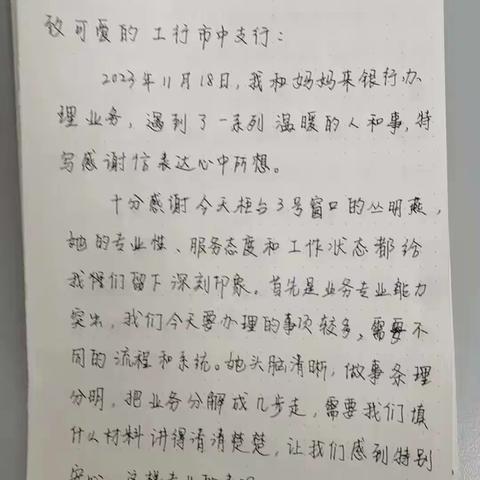 致可爱的工行市中支行：
2023年11月18日，我和妈妈来银行办
理业务，遇到了一系列温暖的人和事，特
写感谢信表达心中所想。
十分感谢今天柜台3号窗口的丛明燕，
她的专业性、服务态度和工作状态都给
我们留下深刻印象。首先是业务专业能力
突出，我们今天要办理的事项较多，需要不
同的流程和系统。她头脑清晰，做事条理
分明，把业务分解成几步走，需要我们填
什么材料讲得清清楚楚，让我们感到特别
安心。这样专业